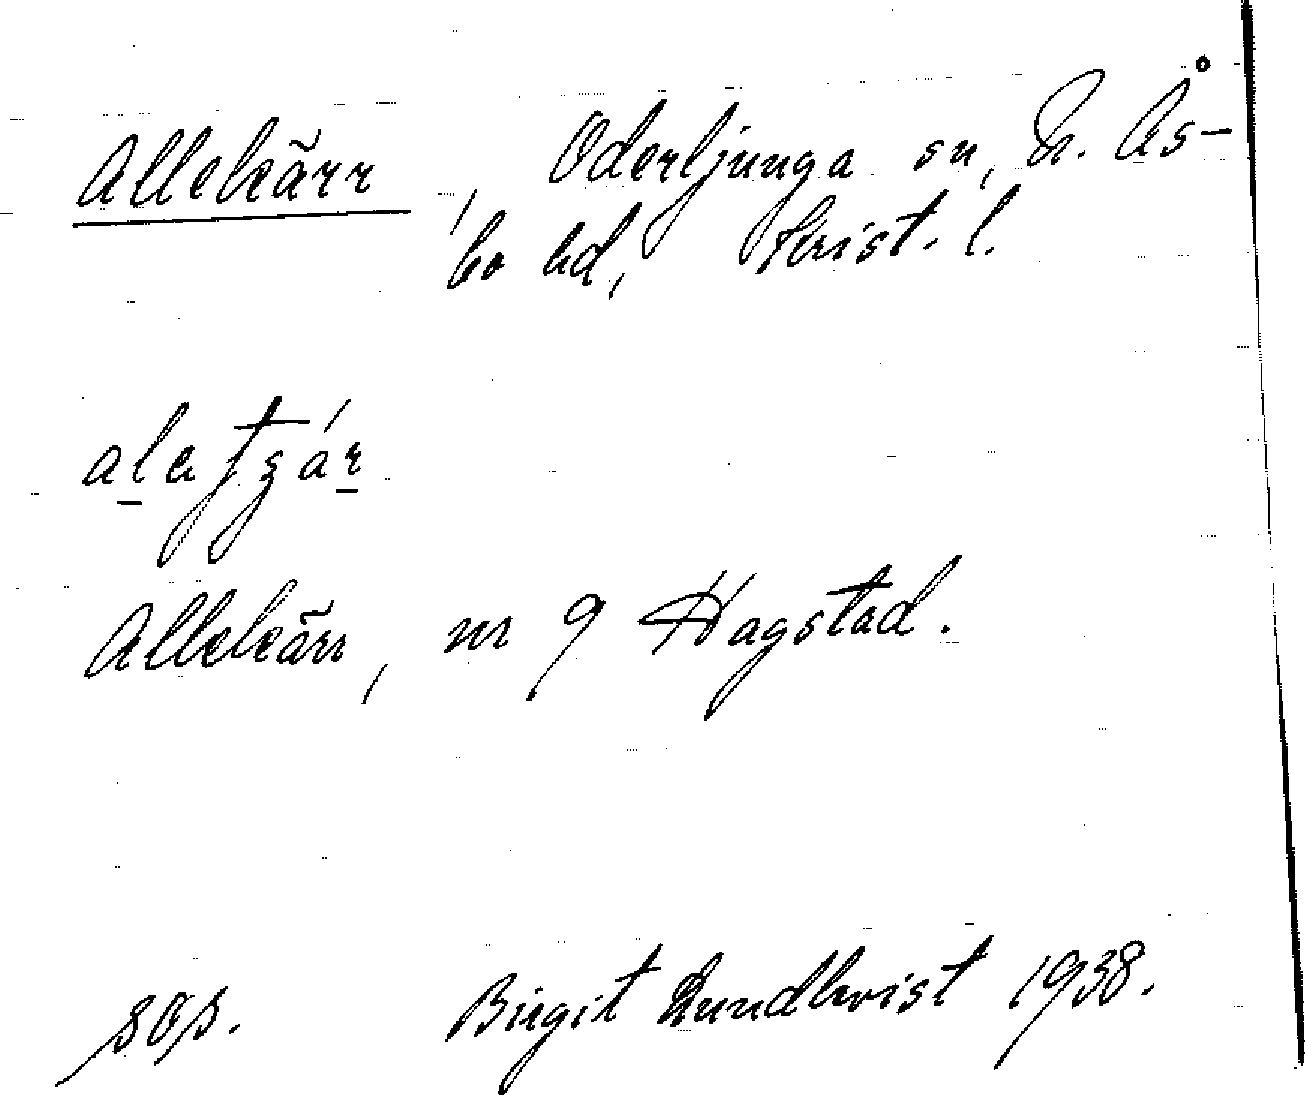 Allekärr, Oderljunga sn, N. Ås-
bo hd, Krist. l.
Allekärr, nr 9 Hagstad.
sop. Birgit Lundkvist 1938.